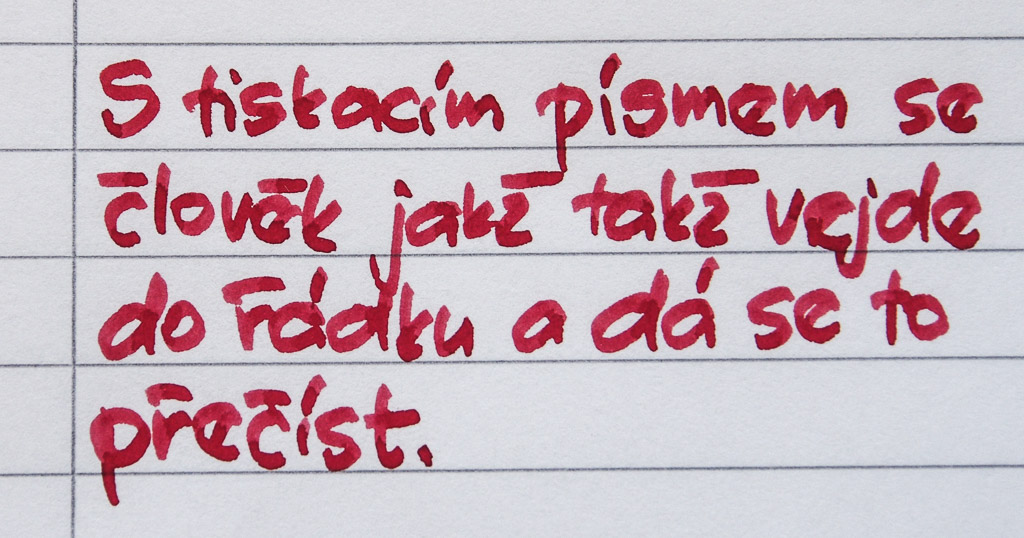 S tiskacím písmem se
člověk jakž takž vejde
do řádku a dá se to
přečíst.